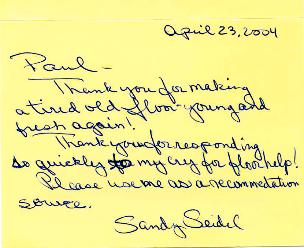 April 23, 2004
Paul -
Thank you for making
a tired old floor young and
fresh again!
Thank you for responding
so quickly to my cry for floor help!
Please use me as a recommedation
source.
Sandy Seidel